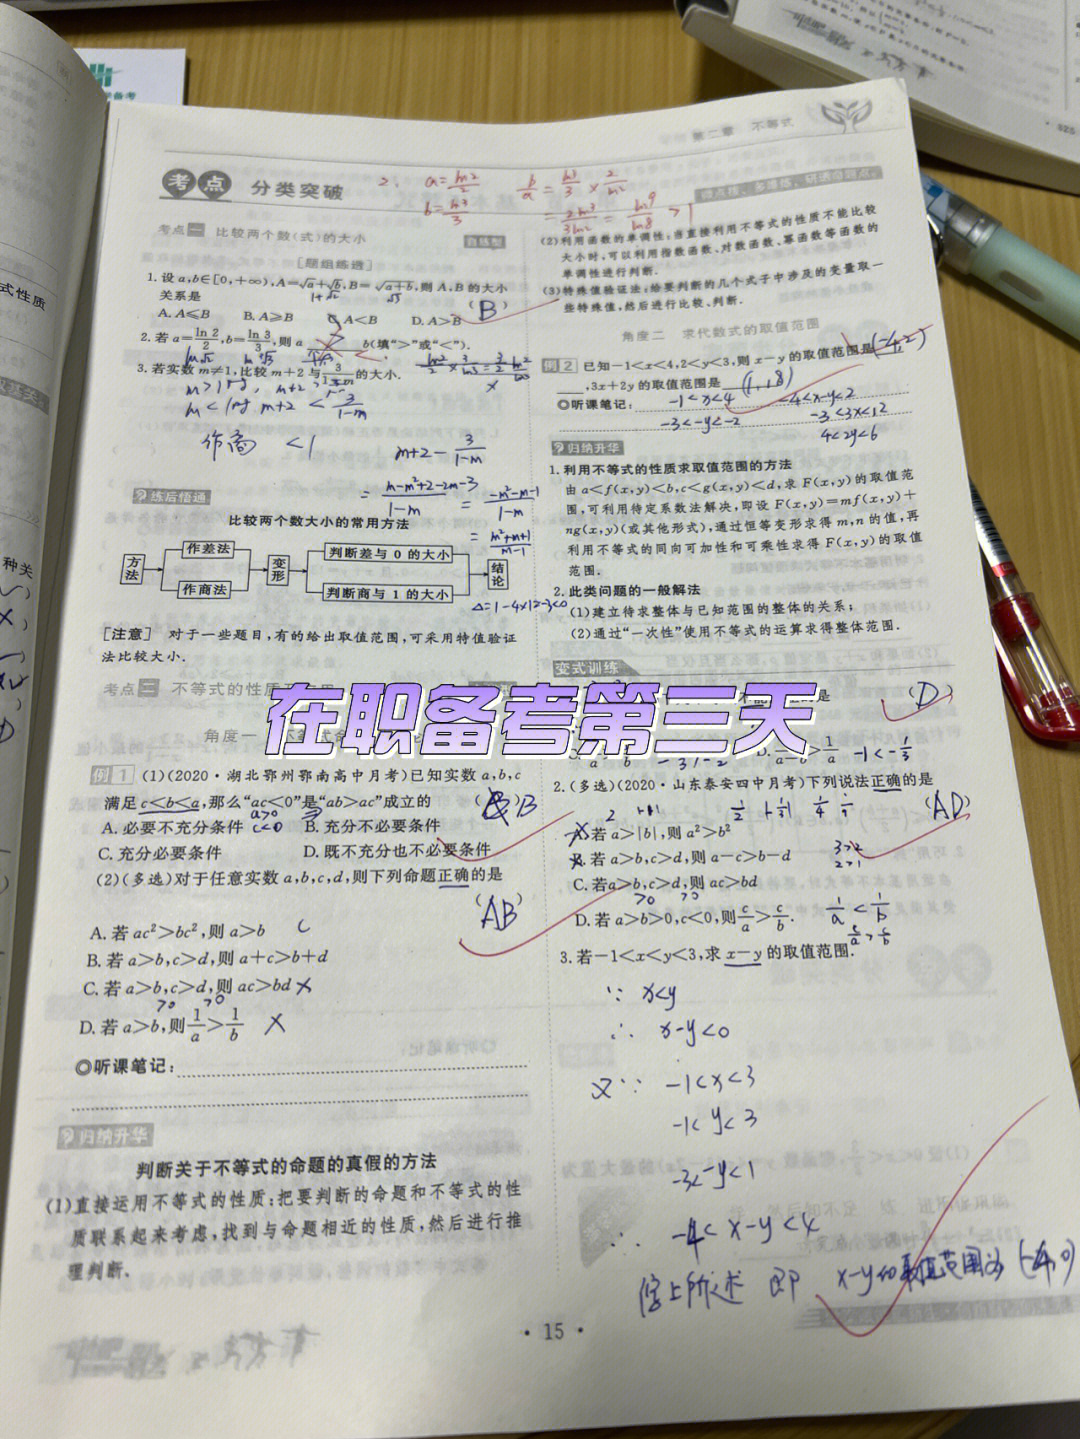 第二章 不等式
考点 分类突破
2. a=ln2/2 b/a=ln3/3×2/ln2
b=ln3/3 =2ln3/3ln2=ln9/ln8>1
考点一 比较两个数(式)的大小 自练型
[题组练透]
1. 设a,b∈[0,+∞),A=√a+√b,B=√(a+b),则A,B的大小
关系是 (B)
A. A≤B B. A≥B C. A<B D. A>B
2. 若a=ln 2/2,b=ln 3/3,则a b(填“>”或“<”).
3. 若实数m≠1,比较m+2与3/(1-m)的大小.
m>1时, m+2>3/(1-m)
m<1时 m+2<3/(1-m)
作商 <1 m+2-3/(1-m)
=(m-m²+2-2m-3)/(1-m)=(-m²-m-1)/(1-m)
=(m²+m+1)/(m-1)
Δ=1-4×1=-3<0
练后悟通
比较两个数大小的常用方法
方法 作差法 作商法 变形 判断差与0的大小 判断商与1的大小 结论
[注意] 对于一些题目,有的给出取值范围,可采用特值验证
法比较大小.
考点二 不等式的性质
角度一 不等式
例1 (1)(2020·湖北鄂州鄂南高中月考)已知实数a,b,c
满足c<b<a,那么“ac<0”是“ab>ac”成立的 B
a>0
c<0
A. 必要不充分条件 B. 充分不必要条件
C. 充分必要条件 D. 既不充分也不必要条件
(2)(多选)对于任意实数a,b,c,d,则下列命题正确的是
(AB)
A. 若ac²>bc²,则a>b
B. 若a>b,c>d,则a+c>b+d
C. 若a>b,c>d,则ac>bd ×
>0 >0
D. 若a>b,则1/a>1/b ×
◎听课笔记:
归纳升华
判断关于不等式的命题的真假的方法
(1)直接运用不等式的性质:把要判断的命题和不等式的性
质联系起来考虑,找到与命题相近的性质,然后进行推
理判断.
(2)利用函数的单调性:当直接利用不等式的性质不能比较
大小时,可以利用指数函数、对数函数、幂函数等函数的
单调性进行判断.
(3)特殊值验证法:给要判断的几个式子中涉及的变量取一
些特殊值,然后进行比较、判断.
角度二 求代数式的取值范围
例2 已知-1<x<4,2<y<3,则x-y的取值范围是(-4,2)
,3x+2y的取值范围是 (1,18)
◎听课笔记: -1<x<4 -4<x-y<2
-3<-y<-2 -3<3x<12
4<2y<6
归纳升华
1. 利用不等式的性质求取值范围的方法
由a<f(x,y)<b,c<g(x,y)<d,求F(x,y)的取值范
围,可利用待定系数法解决,即设F(x,y)=mf(x,y)+
ng(x,y)(或其他形式),通过恒等变形求得m,n的值,再
利用不等式的同向可加性和可乘性求得F(x,y)的取值
范围.
2. 此类问题的一般解法
(1)建立待求整体与已知范围的整体的关系;
(2)通过“一次性”使用不等式的运算求得整体范围.
变式训练
是 (D)
在职备考第三天
D. 1/(a-b)>1/a -1<-1/3
2. (多选)(2020·山东泰安四中月考)下列说法正确的是
(AD)
A. 若a>|b|,则a²>b²
B. 若a>b,c>d,则a-c>b-d 3>2
2>1
C. 若a>b,c>d,则ac>bd
>0 >0
D. 若a>b>0,c<0,则c/a>c/b. 1/a<1/b
c/a>c/b
3. 若-1<x<y<3,求x-y的取值范围.
∵ x<y
∴ x-y<0
又∵ -1<x<3
-1<y<3
-3<-y<1
∴ -4<x-y<4
综上所述 即 x-y的取值范围为(-4,0)
·15·